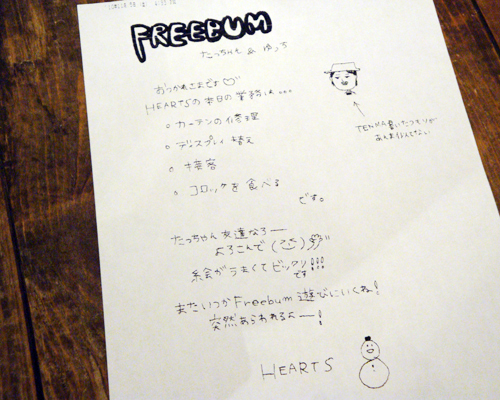 FREEBUM
たっちゃん & ゆっち
おつかれさまです
HEARTSの本日の業務は...
○ カーテンの修理
○ ディスプレイ替え
○ 接客
○ コロッケを食べる
です。
TENMA書いたつもりが
あんま似てない
たっちゃん友達なろー
よろこんで
絵がうまくてビックリです!!!
またいつかFreebum遊びにいくね!
突然あらわれるよー!
HEARTS